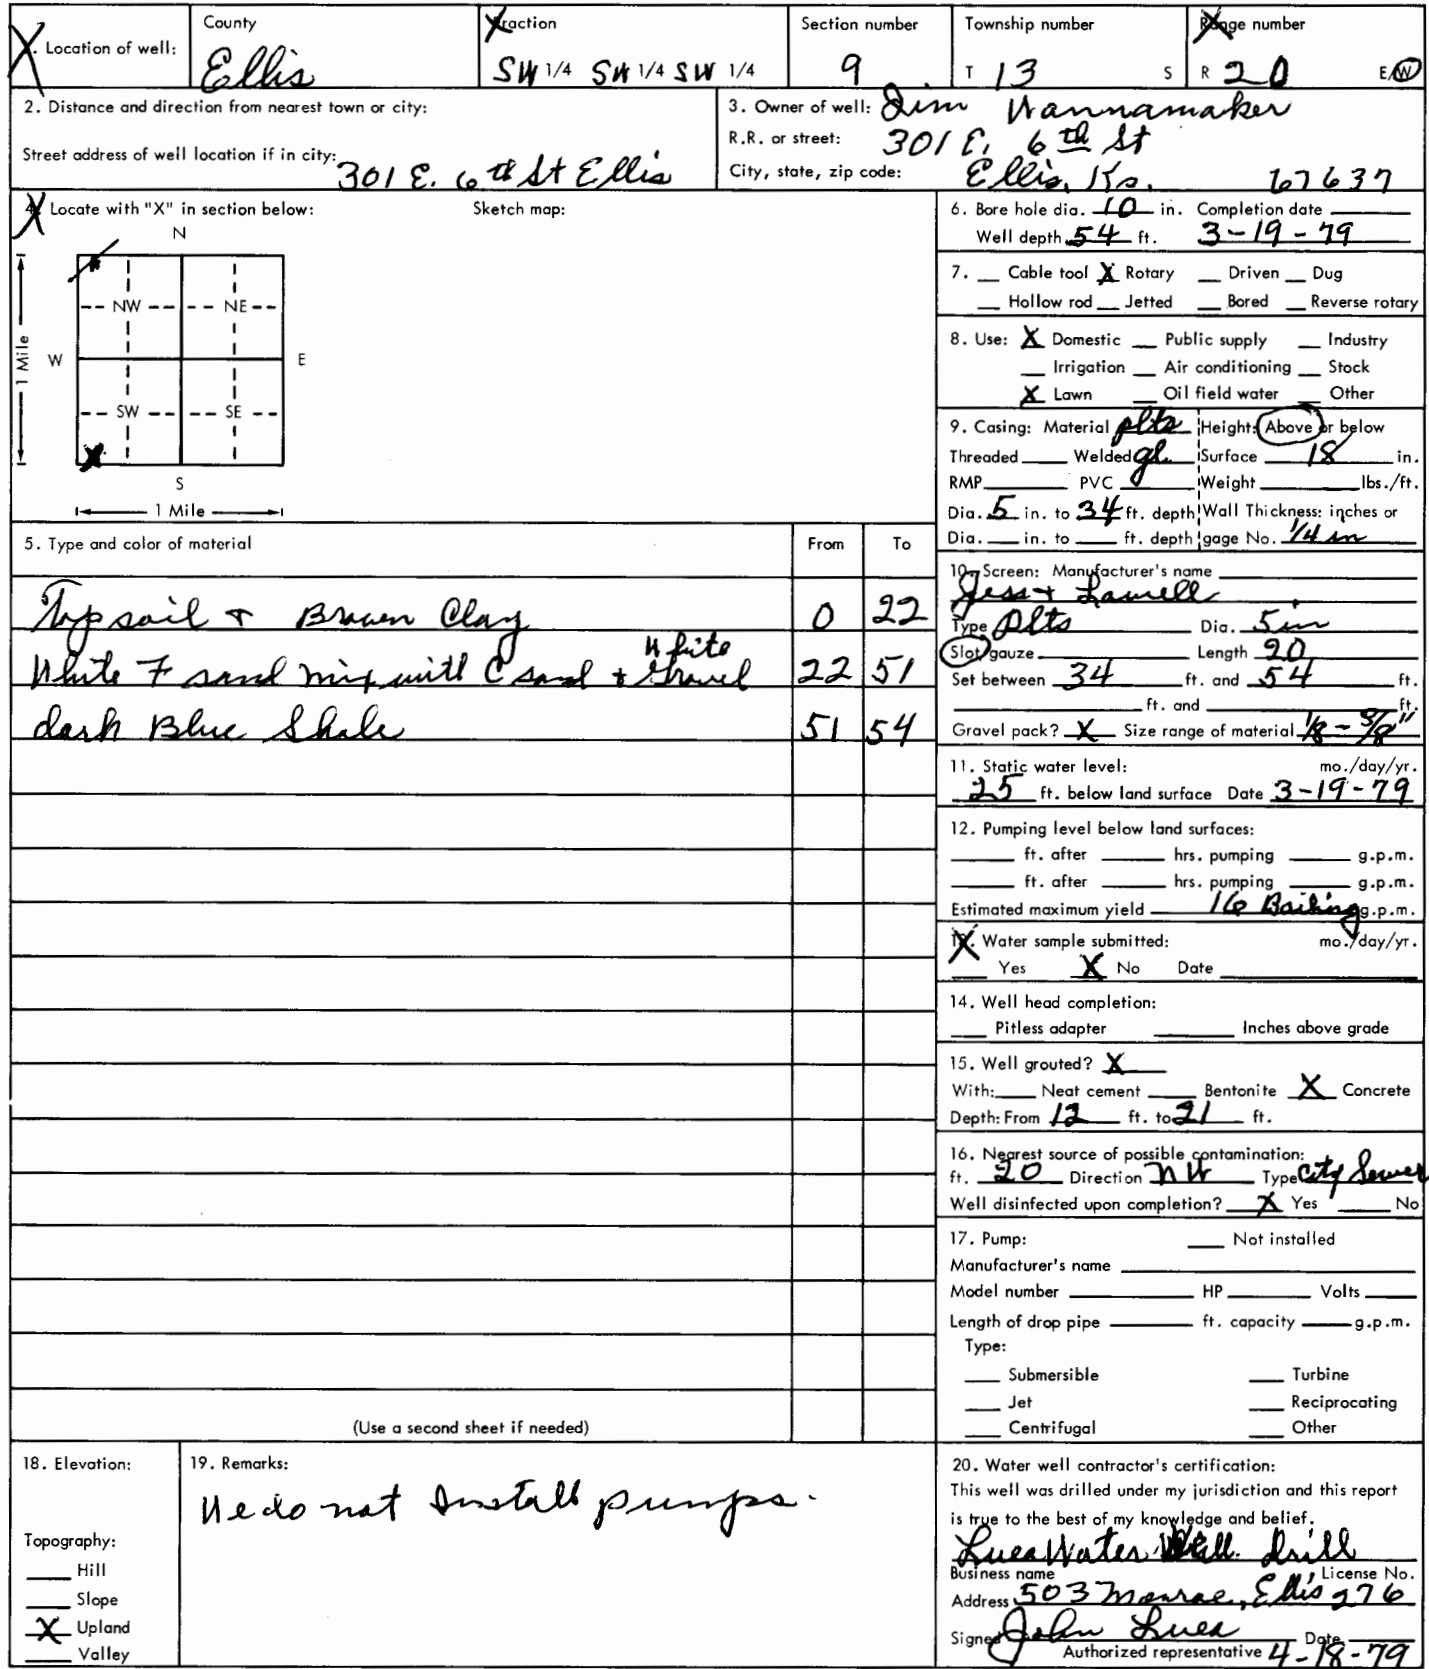 1. Location of well: County Ellis Fraction SW 1/4 SW 1/4 SW 1/4 Section number 9 Township number T 13 S Range number R 20 E/W
2. Distance and direction from nearest town or city:
Street address of well location if in city: 301 E. 6th St Ellis
3. Owner of well: Jim Wannamaker
R.R. or street: 301 E. 6th St
City, state, zip code: Ellis, Ks. 67637
4. Locate with "X" in section below: Sketch map:
N
NW NE
W E
1 Mile
SW SE
X
S
1 Mile
5. Type and color of material From To
Top soil + Brown Clay 0 22
White F sand mix with C sand + White Gravel 22 51
dark Blue Shale 51 54
(Use a second sheet if needed)
6. Bore hole dia. 10 in. Completion date
Well depth 54 ft. 3-19-79
7. Cable tool X Rotary Driven Dug
Hollow rod Jetted Bored Reverse rotary
8. Use: X Domestic Public supply Industry
Irrigation Air conditioning Stock
X Lawn Oil field water Other
9. Casing: Material plts Height: Above or below
Threaded Welded gl Surface 18 in.
RMP PVC Weight lbs./ft.
Dia. 5 in. to 34 ft. depth Wall Thickness: inches or
Dia. in. to ft. depth gage No. 1/4 in
10. Screen: Manufacturer's name
Jess + Lawell
Type Plts Dia. 5in
Slot/gauze Length 20
Set between 34 ft. and 54 ft.
ft. and ft.
Gravel pack? X Size range of material 1/8 - 5/8"
11. Static water level: mo./day/yr.
25 ft. below land surface Date 3-19-79
12. Pumping level below land surfaces:
ft. after hrs. pumping g.p.m.
ft. after hrs. pumping g.p.m.
Estimated maximum yield 16 Bailing g.p.m.
13. Water sample submitted: mo./day/yr.
Yes X No Date
14. Well head completion:
Pitless adapter Inches above grade
15. Well grouted? X
With: Neat cement Bentonite X Concrete
Depth: From 12 ft. to 21 ft.
16. Nearest source of possible contamination:
ft. 20 Direction NW Type City Sewer
Well disinfected upon completion? X Yes No
17. Pump: Not installed
Manufacturer's name
Model number HP Volts
Length of drop pipe ft. capacity g.p.m.
Type:
Submersible Turbine
Jet Reciprocating
Centrifugal Other
18. Elevation:
Topography:
Hill
Slope
X Upland
Valley
19. Remarks:
We do not Install pumps.
20. Water well contractor's certification:
This well was drilled under my jurisdiction and this report
is true to the best of my knowledge and belief.
Luea Water Well Drill
Business name License No.
Address 503 Monroe, Ellis 276
Signed John Luea Date
Authorized representative 4-18-79